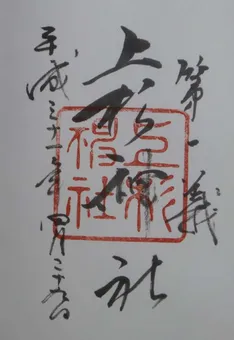 第一義
上杉神社
平成三十一年四月三十日
上杉神社